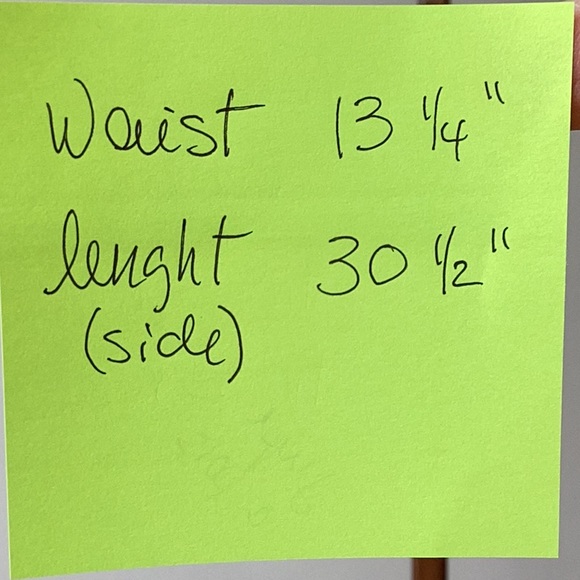 Waist 13 1/4"
lenght 30 1/2"
(side)